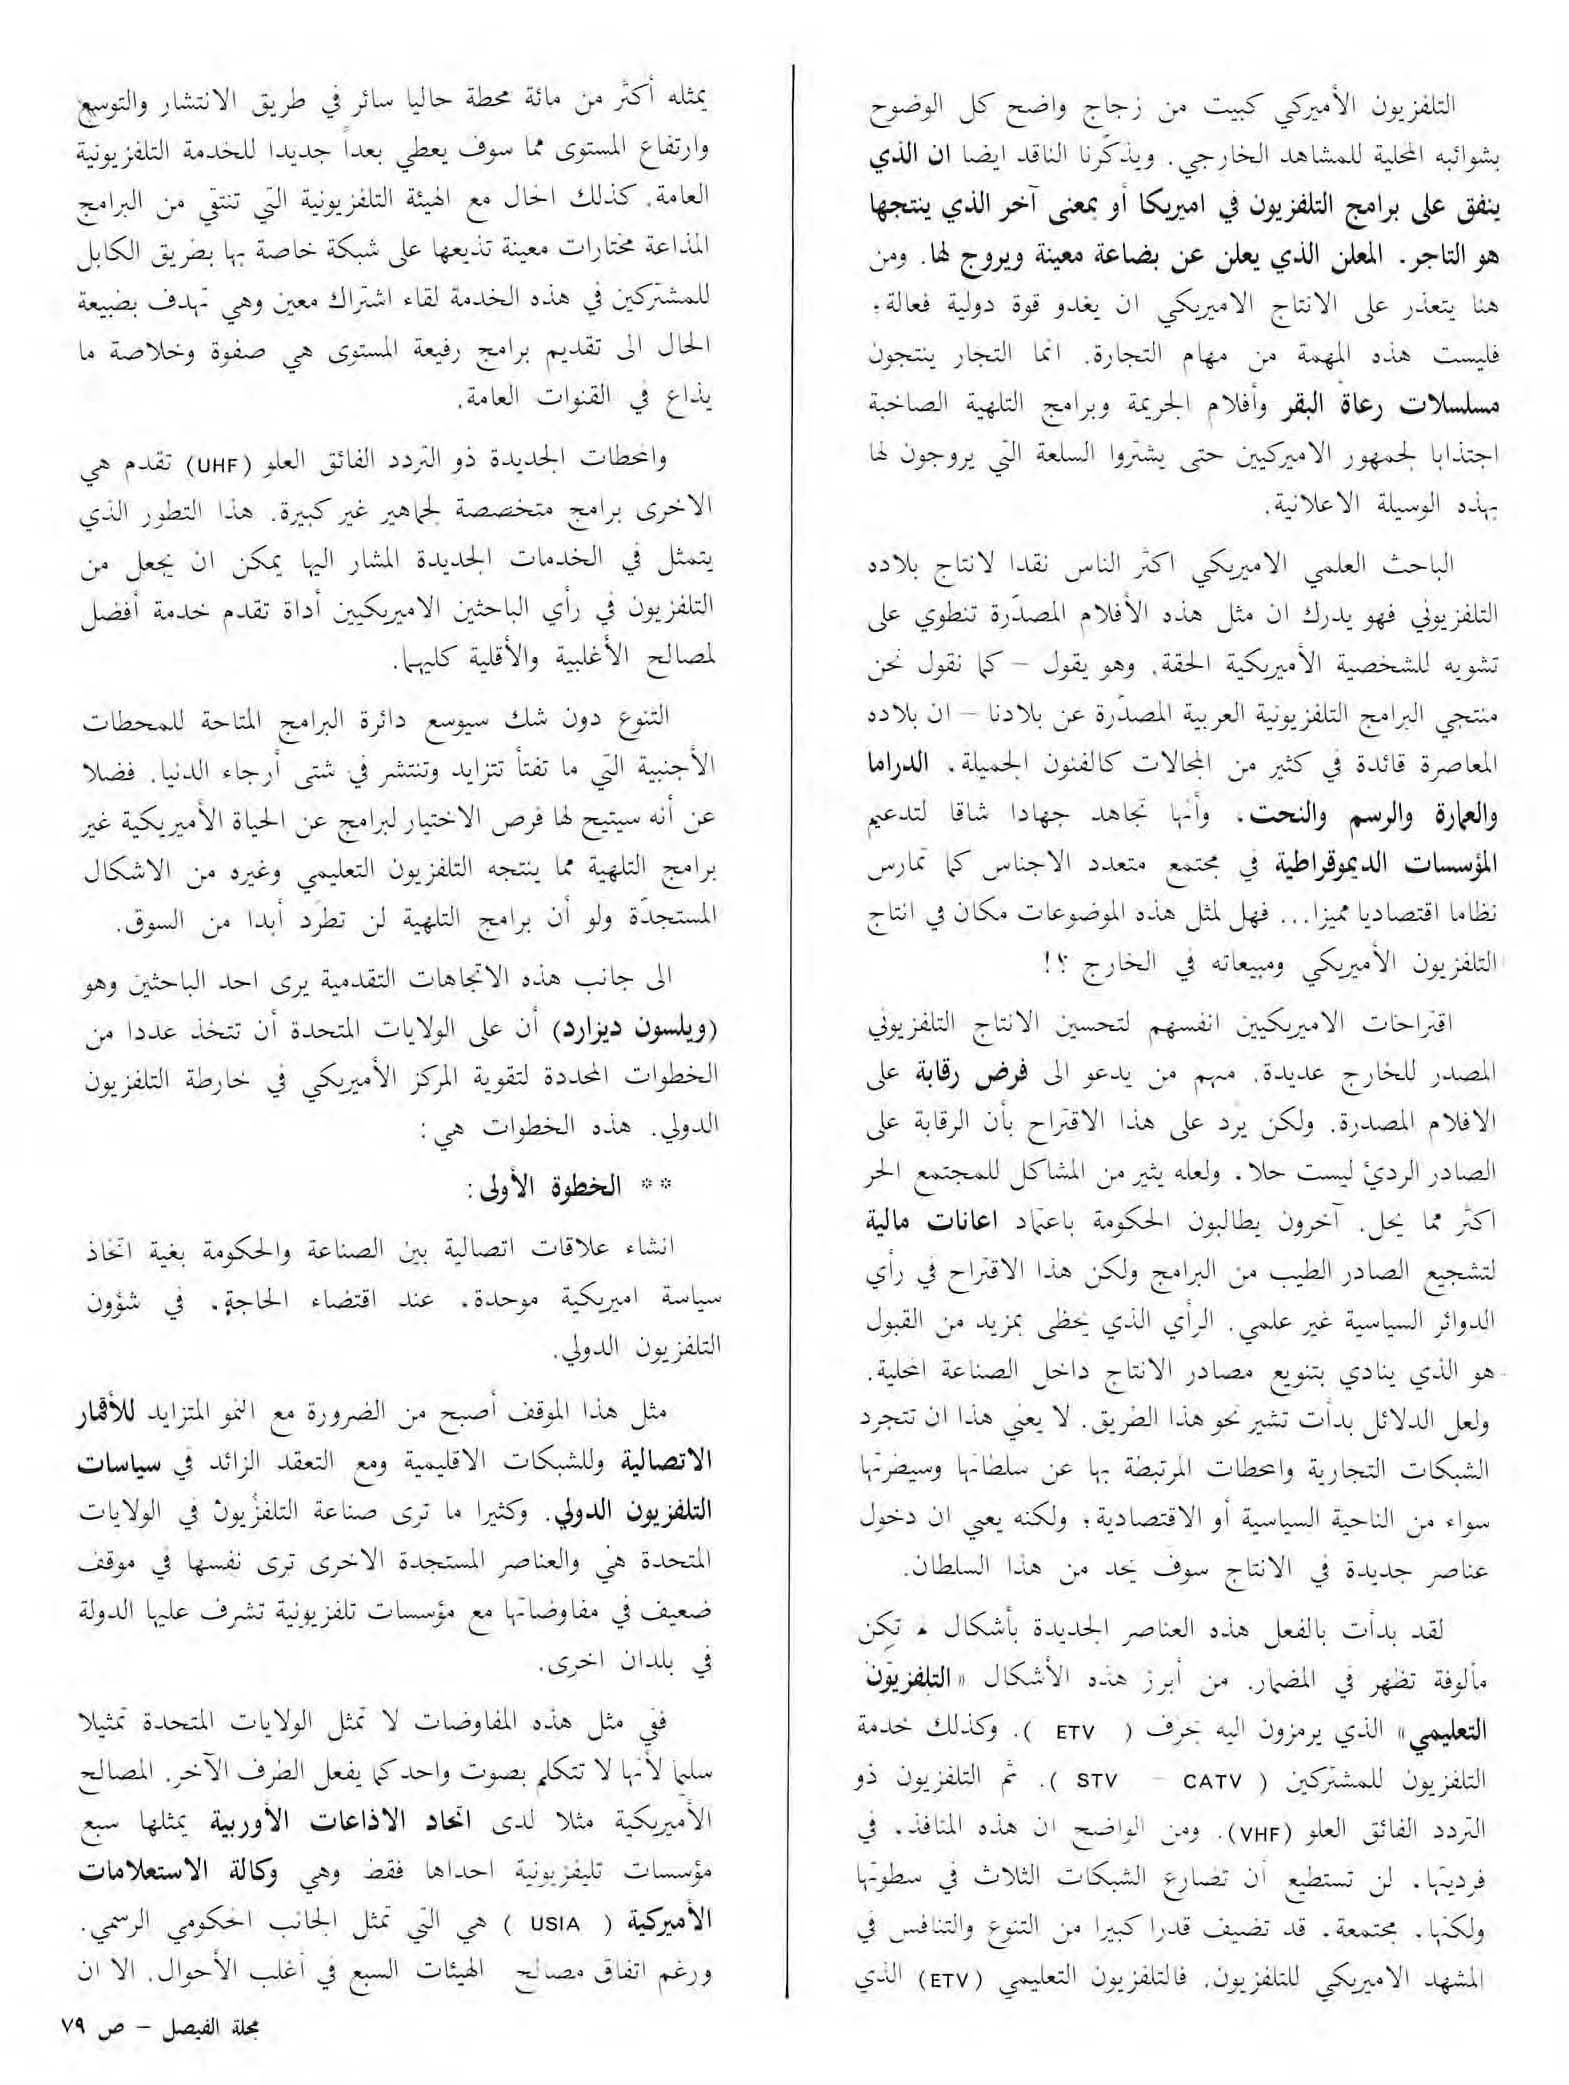 التلفزيون الأميركي كبيت من زجاج واضح كل الوضوح
بشوائبه المحلية للمشاهد الخارجي. ويذكّرنا الناقد ايضا ان الذي
ينفق على برامج التلفزيون في اميريكا أو بمعنى آخر الذي ينتجها
هو التاجر. المعلن الذي يعلن عن بضاعة معينة ويروج لها. ومن
هنا يتعذر على الانتاج الاميريكي ان يغدو قوة دولية فعالة؛
فليست هذه المهمة من مهام التجارة. انما التجار ينتجون
مسلسلات رعاة البقر وأفلام الجريمة وبرامج التلهية الصاخبة
اجتذابا لجمهور الاميركيين حتى يشتروا السلعة التي يروجون لها
بهذه الوسيلة الاعلانية.
الباحث العلمي الاميريكي اكثر الناس نقدا لانتاج بلاده
التلفزيوني فهو يدرك ان مثل هذه الأفلام المصدّرة تنطوي على
تشويه للشخصية الأميريكية الحقة. وهو يقول – كما نقول نحن
منتجي البرامج التلفزيونية العربية المصدّرة عن بلادنا – ان بلاده
المعاصرة قائدة في كثير من المجالات كالفنون الجميلة. الدراما
والعمارة والرسم والنحت. وأنها تجاهد جهادا شاقا لتدعيم
المؤسسات الديموقراطية في مجتمع متعدد الاجناس كما تمارس
نظاما اقتصاديا مميزا... فهل لمثل هذه الموضوعات مكان في انتاج
التلفزيون الأميريكي ومبيعاته في الخارج ؟!
اقتراحات الاميريكيين انفسهم لتحسين الانتاج التلفزيوني
المصدر للخارج عديدة. منهم من يدعو الى فرض رقابة على
الافلام المصدرة. ولكن يرد على هذا الاقتراح بأن الرقابة على
الصادر الرديء ليست حلا. ولعله يثير من المشاكل للمجتمع الحر
اكثر مما يحل. آخرون يطالبون الحكومة باعتماد اعانات مالية
لتشجيع الصادر الطيب من البرامج ولكن هذا الاقتراح في رأي
الدوائر السياسية غير علمي. الرأي الذي يحظى بمزيد من القبول
هو الذي ينادي بتنويع مصادر الانتاج داخل الصناعة المحلية.
ولعل الدلائل بدأت تشير نحو هذا الطريق. لا يعني هذا ان تتجرد
الشبكات التجارية والمحطات المرتبطة بها عن سلطاتها وسيطرتها
سواء من الناحية السياسية أو الاقتصادية؛ ولكنه يعني ان دخول
عناصر جديدة في الانتاج سوف يحد من هذا السلطان.
لقد بدأت بالفعل هذه العناصر الجديدة بأشكال تكن
مألوفة تظهر في المضمار. من أبرز هذه الأشكال «التلفزيون
التعليمي» الذي يرمزون اليه بحرف ( ETV ). وكذلك خدمة
التلفزيون للمشتركين ( STV – CATV ). ثم التلفزيون ذو
التردد الفائق العلو (VHF). ومن الواضح ان هذه المنافذ. في
فرديتها. لن تستطيع أن تصارع الشبكات الثلاث في سطوتها
ولكنها. مجتمعة. قد تضيف قدرا كبيرا من التنوع والتنافس في
المشهد الاميريكي للتلفزيون. فالتلفزيون التعليمي (ETV) الذي
يمثله أكثر من مائة محطة حاليا سائر في طريق الانتشار والتوسع
وارتفاع المستوى مما سوف يعطي بعداً جديدا للخدمة التلفزيونية
العامة. كذلك الحال مع الهيئة التلفزيونية التي تنتقي من البرامج
المذاعة مختارات معينة تذيعها على شبكة خاصة بها بطريق الكابل
للمشتركين في هذه الخدمة لقاء اشتراك معين وهي تهدف بطبيعة
الحال الى تقديم برامج رفيعة المستوى هي صفوة وخلاصة ما
يذاع في القنوات العامة.
والمحطات الجديدة ذو التردد الفائق العلو (UHF) تقدم هي
الاخرى برامج متخصصة لجماهير غير كبيرة. هذا التطور الذي
يتمثل في الخدمات الجديدة المشار اليها يمكن ان يجعل من
التلفزيون في رأي الباحثين الاميريكيين أداة تقدم خدمة أفضل
لمصالح الأغلبية والأقلية كليهما.
التنوع دون شك سيوسع دائرة البرامج المتاحة للمحطات
الأجنبية التي ما تفتأ تتزايد وتنتشر في شتى أرجاء الدنيا. فضلا
عن أنه سيتيح لها فرص الاختيار لبرامج عن الحياة الأميريكية غير
برامج التلهية مما ينتجه التلفزيون التعليمي وغيره من الاشكال
المستجدّة ولو أن برامج التلهية لن تطرَد أبدا من السوق.
الى جانب هذه الاتجاهات التقدمية يرى احد الباحثين وهو
(ويلسون ديزارد) أن على الولايات المتحدة أن تتخذ عددا من
الخطوات المحددة لتقوية المركز الأميريكي في خارطة التلفزيون
الدولي. هذه الخطوات هي:
** الخطوة الأولى:
انشاء علاقات اتصالية بين الصناعة والحكومة بغية اتخاذ
سياسة اميريكية موحدة. عند اقتضاء الحاجة. في شؤون
التلفزيون الدولي.
مثل هذا الموقف أصبح من الضرورة مع النمو المتزايد للأقمار
الاتصالية وللشبكات الاقليمية ومع التعقد الزائد في سياسات
التلفزيون الدولي. وكثيرا ما ترى صناعة التلفزيون في الولايات
المتحدة هي والعناصر المستجدة الاخرى ترى نفسها في موقف
ضعيف في مفاوضاتها مع مؤسسات تلفزيونية تشرف عليها الدولة
في بلدان اخرى.
ففي مثل هذه المفاوضات لا تمثل الولايات المتحدة تمثيلا
سليما لأنها لا تتكلم بصوت واحد كما يفعل الطرف الآخر. المصالح
الأميريكية مثلا لدى اتحاد الاذاعات الأوربية يمثلها سبع
مؤسسات تليفزيونية احداها فقط وهي وكالة الاستعلامات
الأميركية ( USIA ) هي التي تمثل الجانب الحكومي الرسمي.
ورغم اتفاق مصالح الهيئات السبع في أغلب الأحوال. الا ان
مجلة الفيصل – ص ٧٩